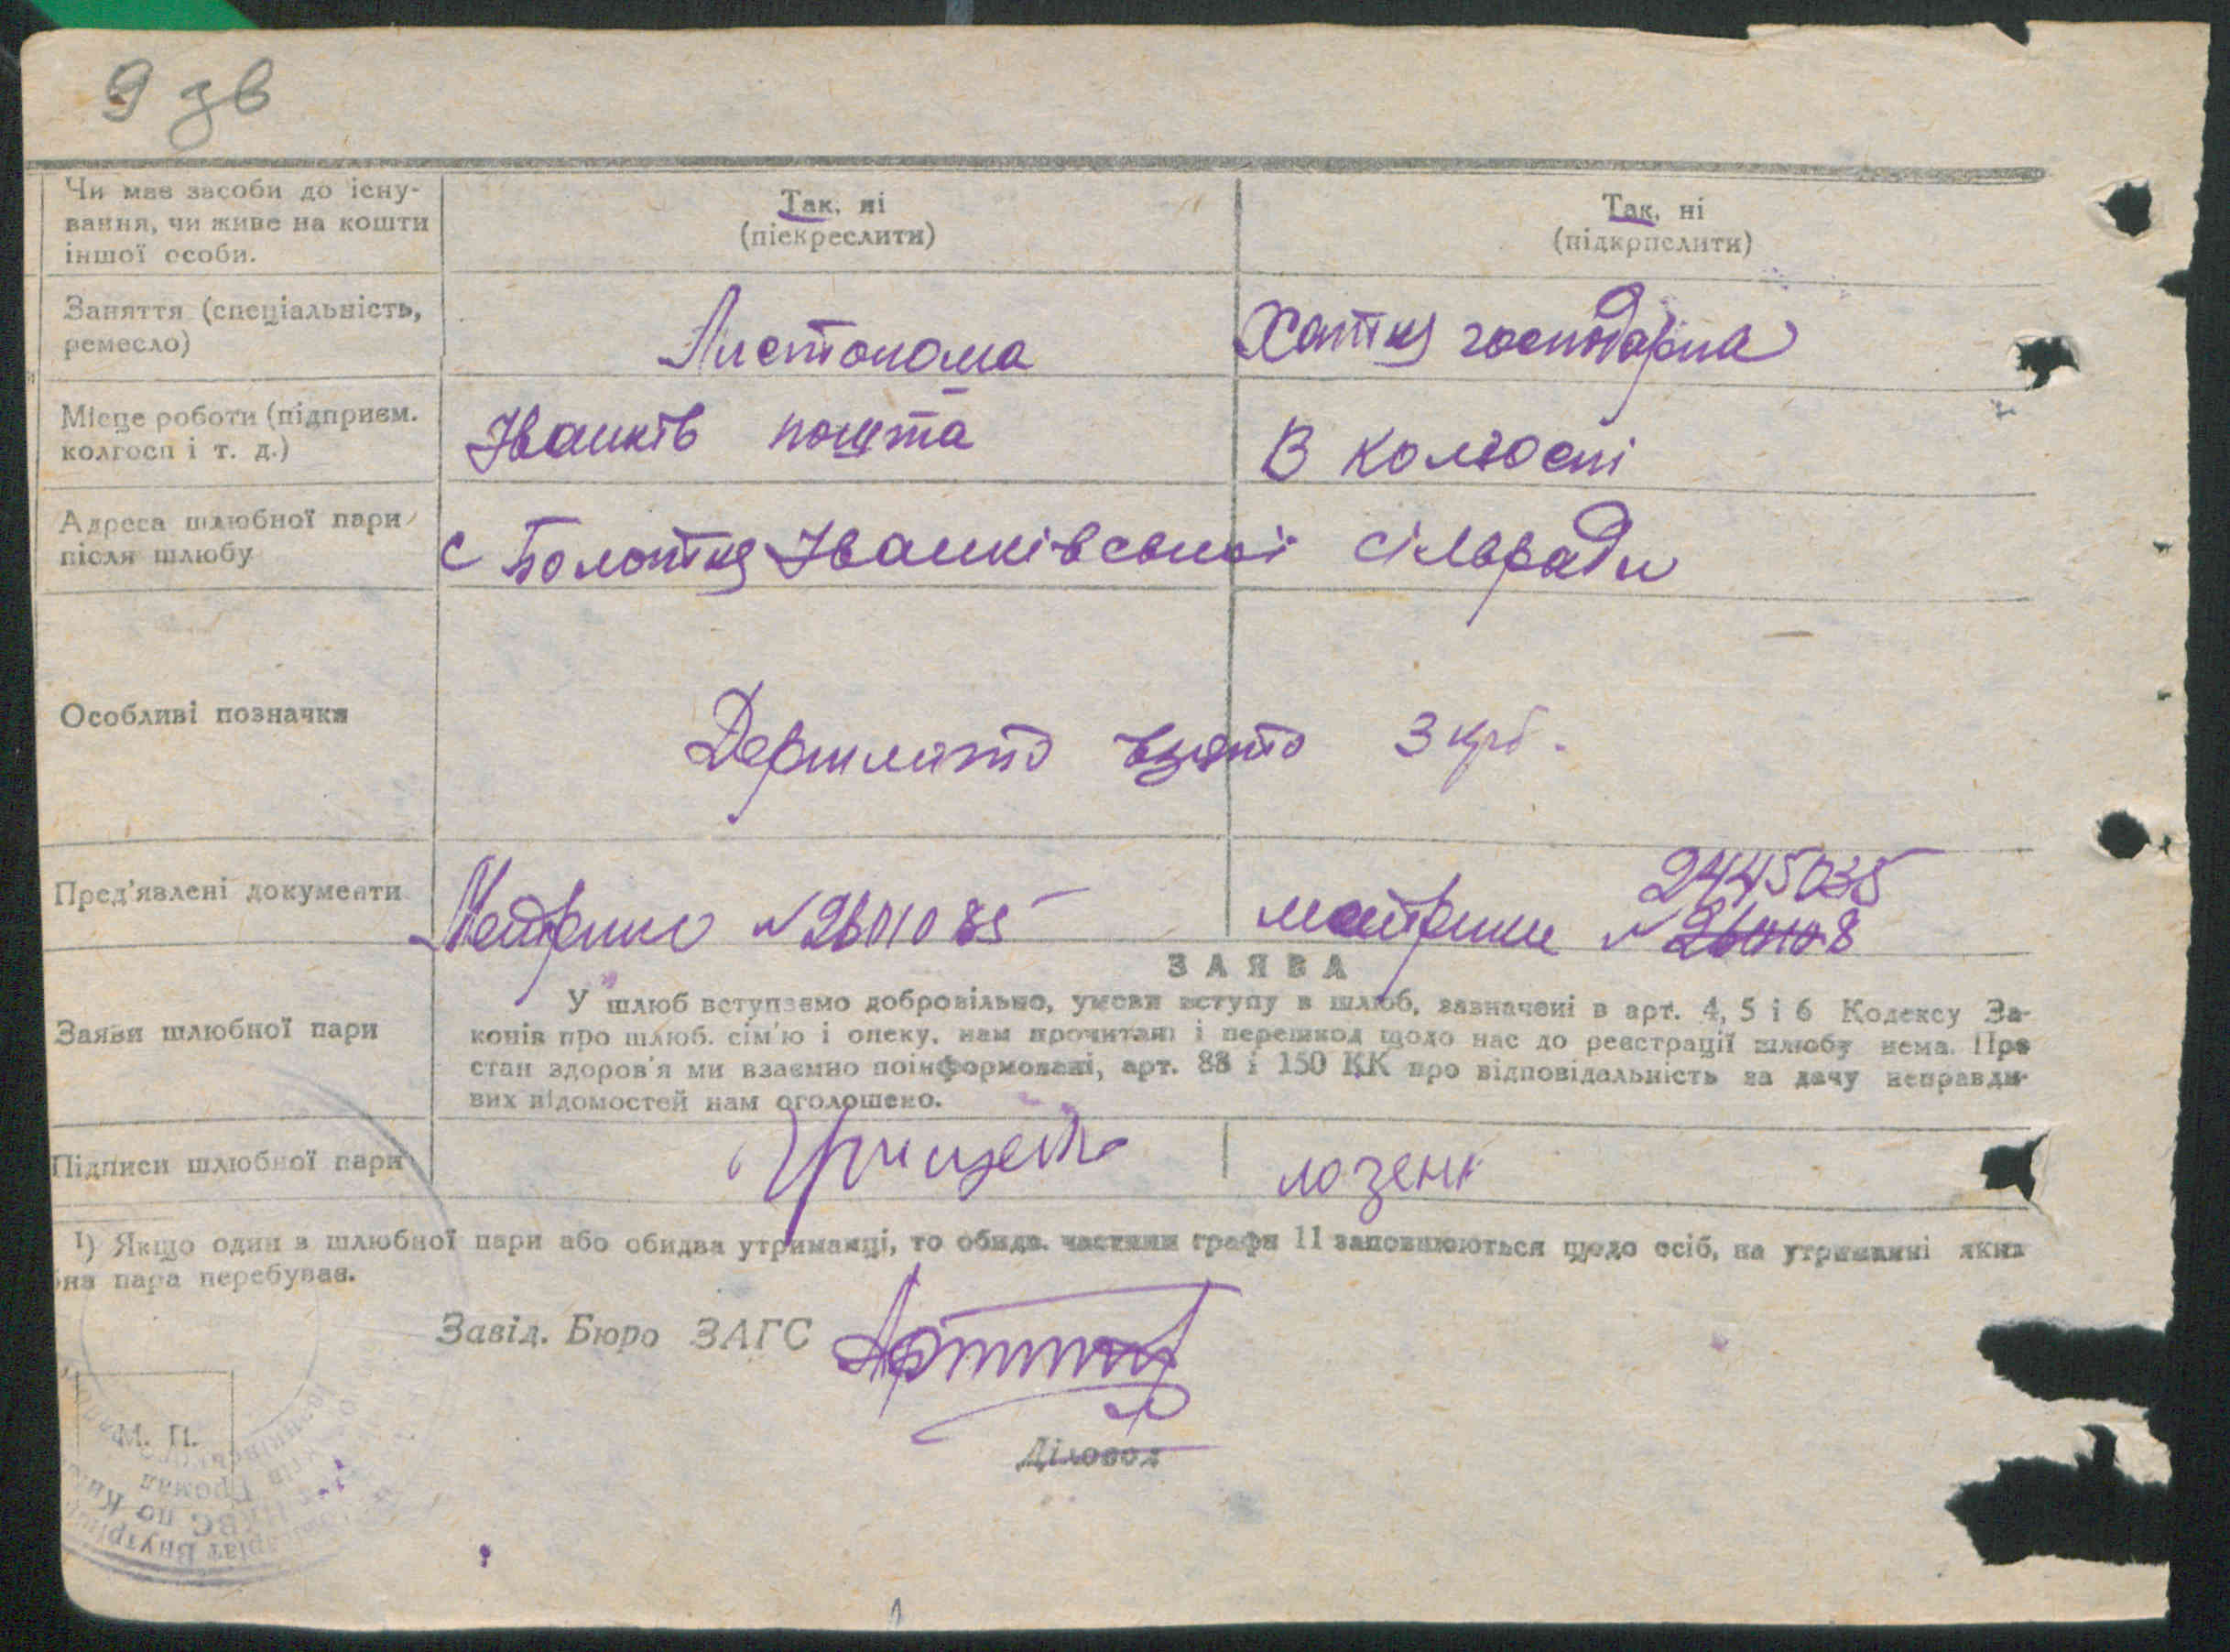 9 зв
Чи має засоби до існу-
вання, чи живе на кошти
іншої особи.
Так, ні
(піекреслити)
Так, ні
(підкрпслити)
Заняття (спеціальність,
ремесло)
Листонома
Хатня господарка
Місце роботи (підприєм.
колгосп і т. д.)
Іванків пошта
В колгоспі
Адреса шлюбної пари
після шлюбу
с Болотня Іванківської сільради
Особливі позначки
Держмито взято 3 крб.
Пред'явлені документи
Метрика №2601085
метрики № 2445035
ЗАЯВА
Заяви шлюбної пари
У шлюб вступаємо добровільно, умови вступу в шлюб, зазначені в арт. 4, 5 і 6 Кодексу За-
конів про шлюб. сім'ю і опеку, нам прочитані і перешкод щодо нас до реєстрації шлюбу нема. Про
стан здоров'я ми взаємно поінформовані, арт. 88 і 150 КК про відповідальність за дачу неправди-
вих відомостей нам оголошено.
Підписи шлюбної пари
Грищенко
лозенк
1) Якщо один з шлюбної пари або обидва утриманці, то обидв. частини графи 11 заповнюються щодо осіб, на утриманні яких
на пара перебуває.
Завід. Бюро ЗАГС
Діловод
М. П.